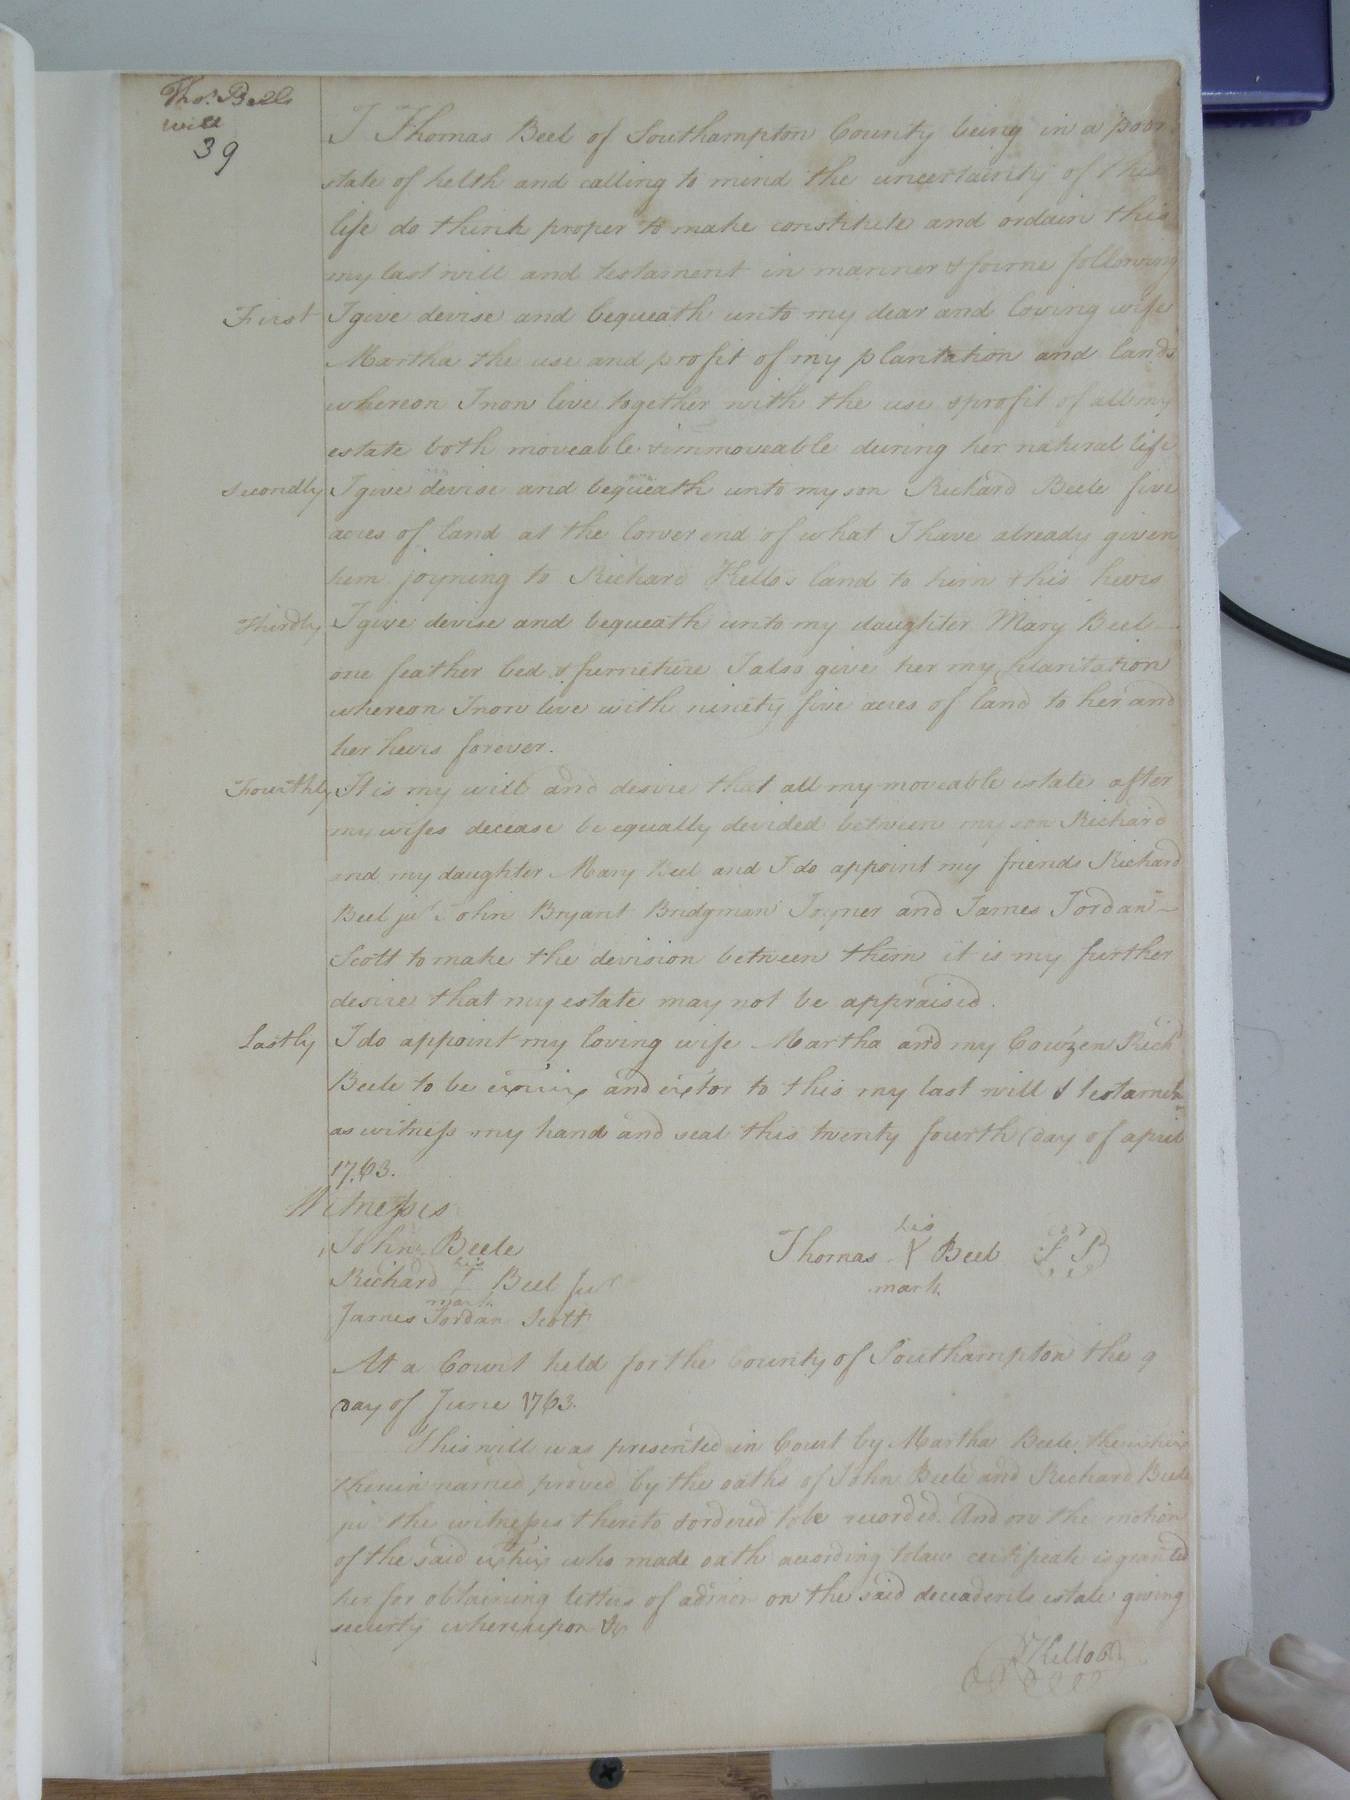 Thos. Beels
will
39
I Thomas Beel of Southampton County being in a poor
state of helth and calling to mind the uncertainty of this
life do think proper to make constitute and ordain this
my last will and testament in manner & forme following
First I give devise and bequeath unto my dear and loving wife
Martha the use and profit of my plantation and lands
whereon I now live together with the use & profit of all my
estate both moveable & immoveable during her natural life
Secondly I give devise and bequeath unto my son Richard Beele five
acres of land at the lower end of what I have already given
him joyning to Richard Kellos land to him & his heirs
Thirdly I give devise and bequeath unto my daughter Mary Beel
one feather bed & furneture I also give her my plantation
whereon I now live with ninety five acres of land to her and
her heirs forever.
Fourthly It is my will and desire that all my moveable estate after
my wifes decease be equally devided between my son Richard
and my daughter Mary Beel and I do appoint my friends Richard
Beel jur John Bryant Bridgman Joyner and James Jordan
Scott to make the devision between them it is my further
desire that my estate may not be appraised.
Lastly I do appoint my loving wife Martha and my Couzen Richd
Beele to be and extor to this my last will & testament
as witness my hand and seal this twenty fourth day of april
1763.
Witnesses
John Beele
Thomas his X mark Beel
Richard his mark Beel jur
James Jordan Scott
At a Court held for the County of Southampton the 9
day of June 1763.
This will was presented in Court by Martha Beele the extrix
therein named proved by the oaths of John Beele and Richard Beele
jur the witnesses thereto & ordered to be recorded. And on the motion
of the said extrix who made oath according to law certificate is granted
her for obtaining letters of admon on the said deceadents estate giving
security whereupon &c
Kello